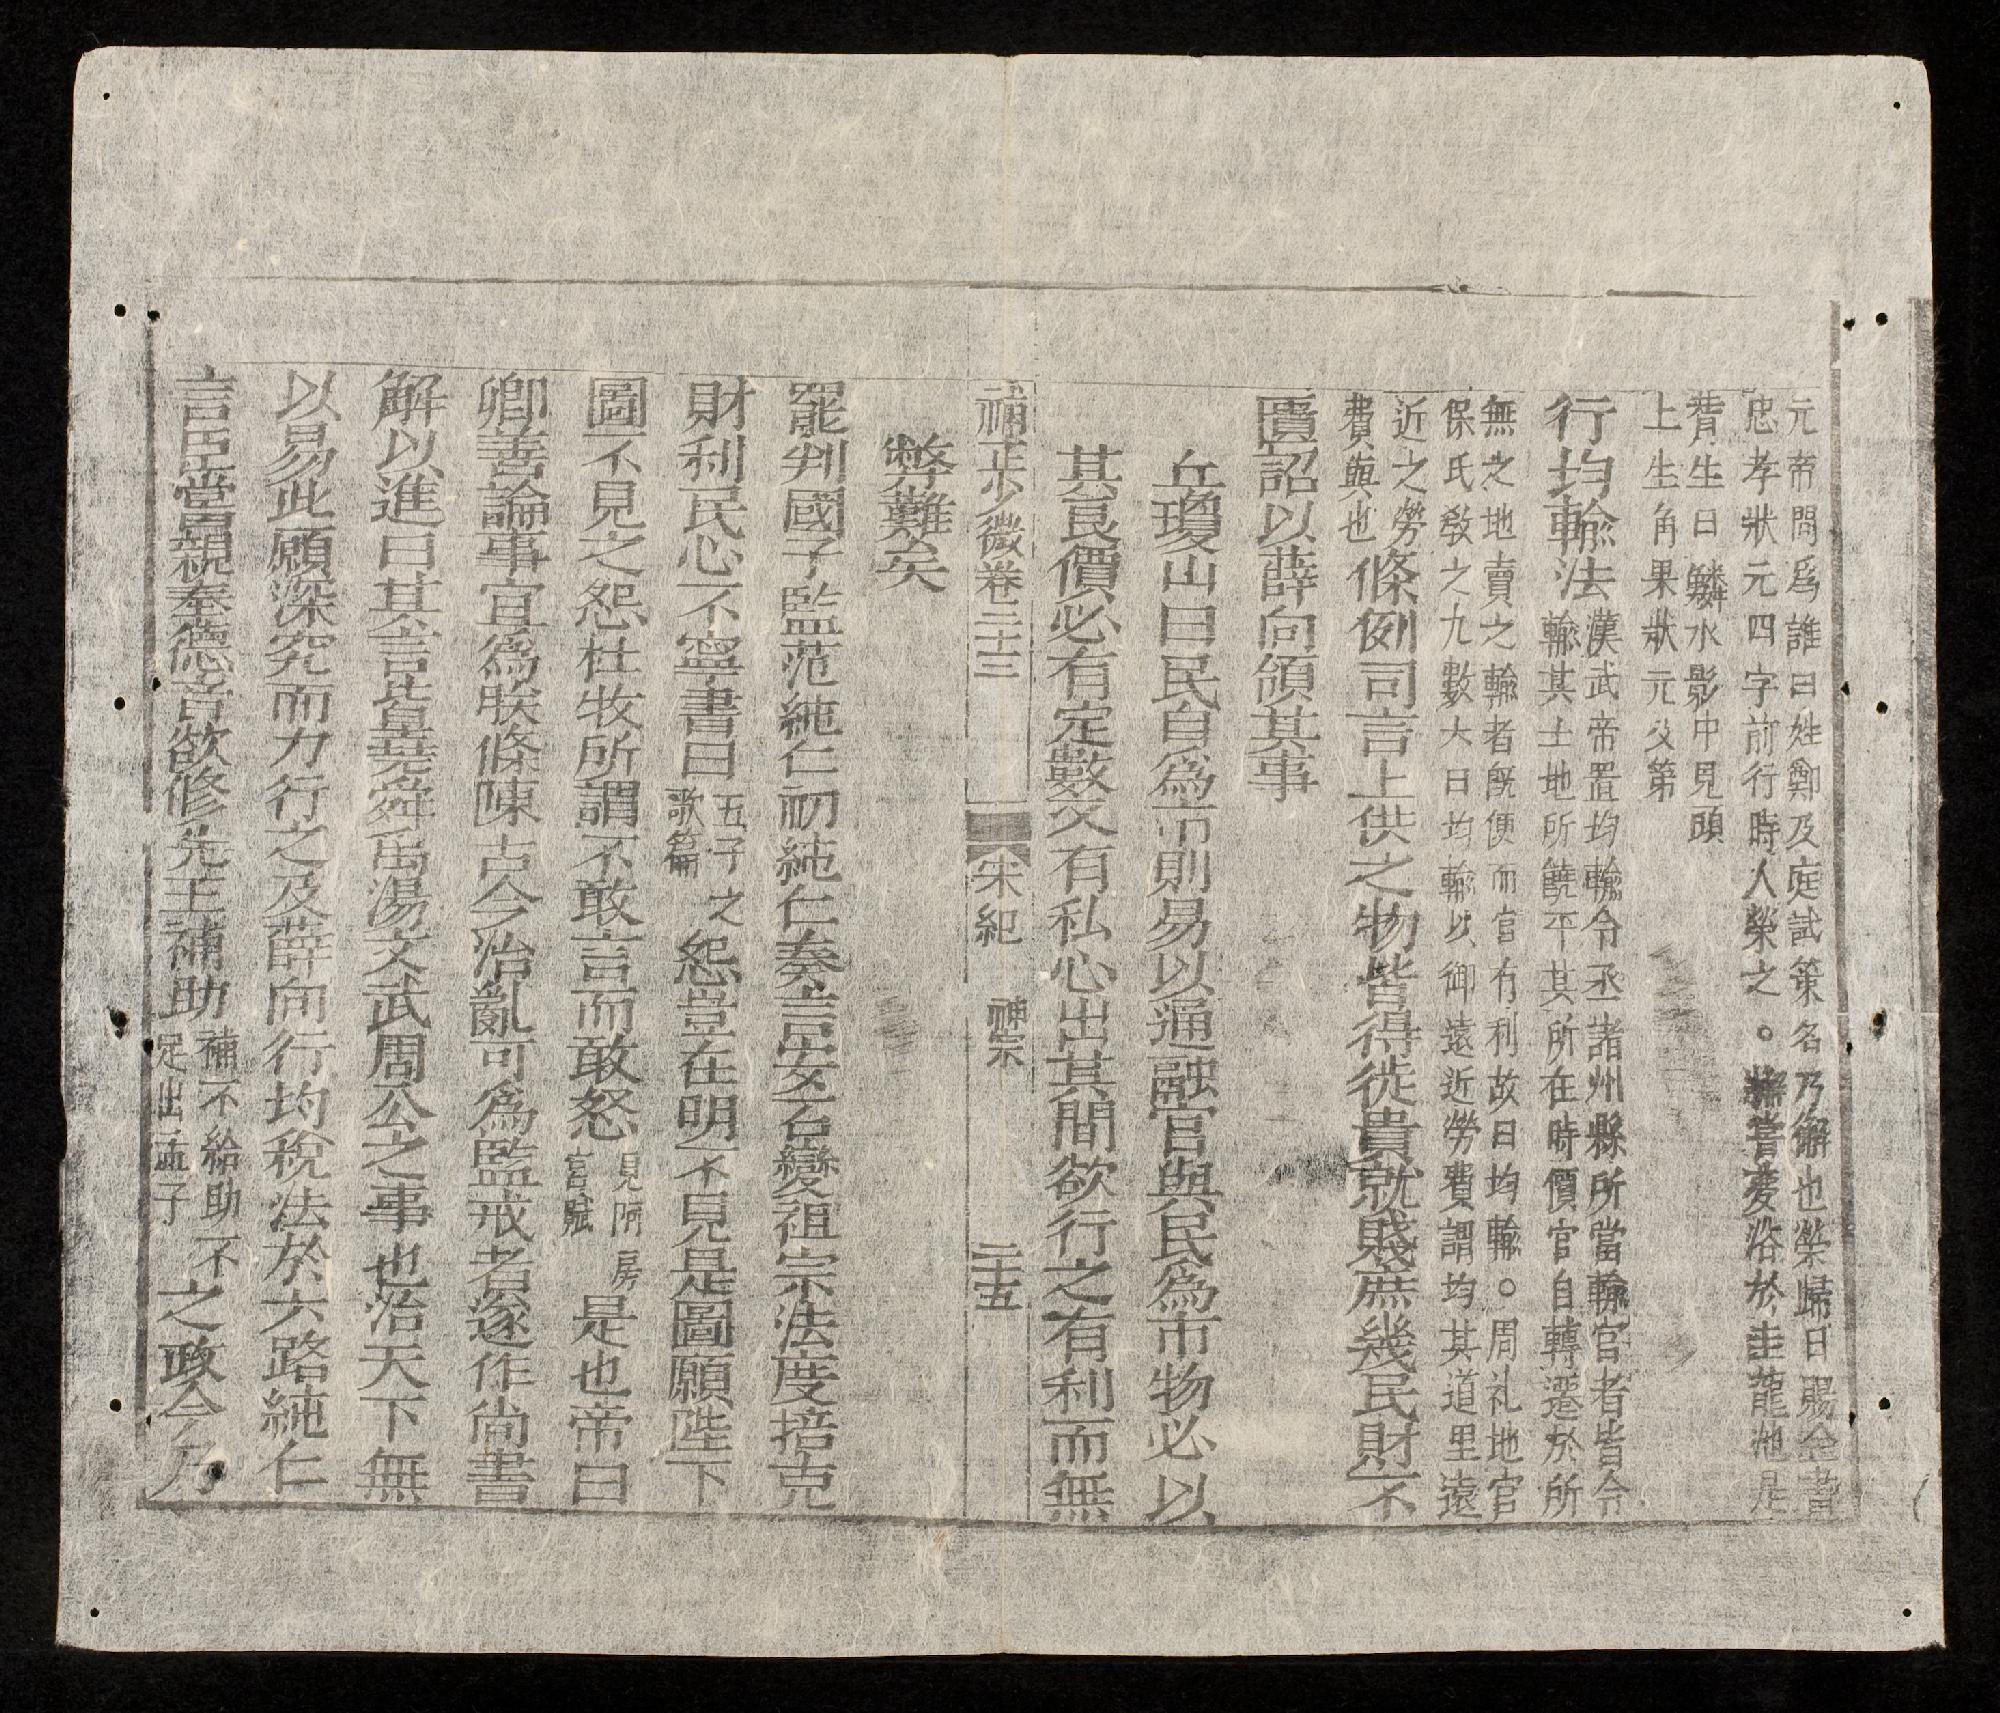 元帝問爲誰曰姓鄭及庭試策名乃獬也榮歸日賜金書
忠孝狀元四字前行時人榮之○獬嘗夜浴於圭龍池是
背生曰鱗水影中見頭
上生角果狀元父第
行均輸法
漢武帝置均輸令丞諸州縣所當輸官者皆令
輸其土地所饒平其所在時價官自轉遷於所
無之地賣之輸者旣便而官有利故曰均輸○周礼地官
保氏敎之九數六曰均輸以御遠近勞費謂均其道里遠
近之勞
費與也
條例司言上供之物皆得徙貴就賤庶幾民財不
匱詔以薛向領其事
丘瓊山曰民自爲市則易以通融官與民爲市物必以
其良價必有定數又有私心出其間欲行之有利而無
補正少微卷三十三 宋紀 神宗 二十五
弊難矣
罷判國子監范純仁初純仁奏言安石變祖宗法度掊克
財利民心不寧書曰
五子之
歌篇
怨豈在明不見是圖願陛下
圖不見之怨杜牧所謂不敢言而敢怒
見阿房
宮賦
是也帝曰
卿善論事宜爲朕條陳古今治亂可爲監戒者遂作尚書
解以進曰其言皆堯舜禹湯文武周公之事也治天下無
以易此願深究而力行之及薛向行均稅法於六路純仁
言臣嘗親奉德音欲修先王補助
補不給助不
足出孟子
之政今乃